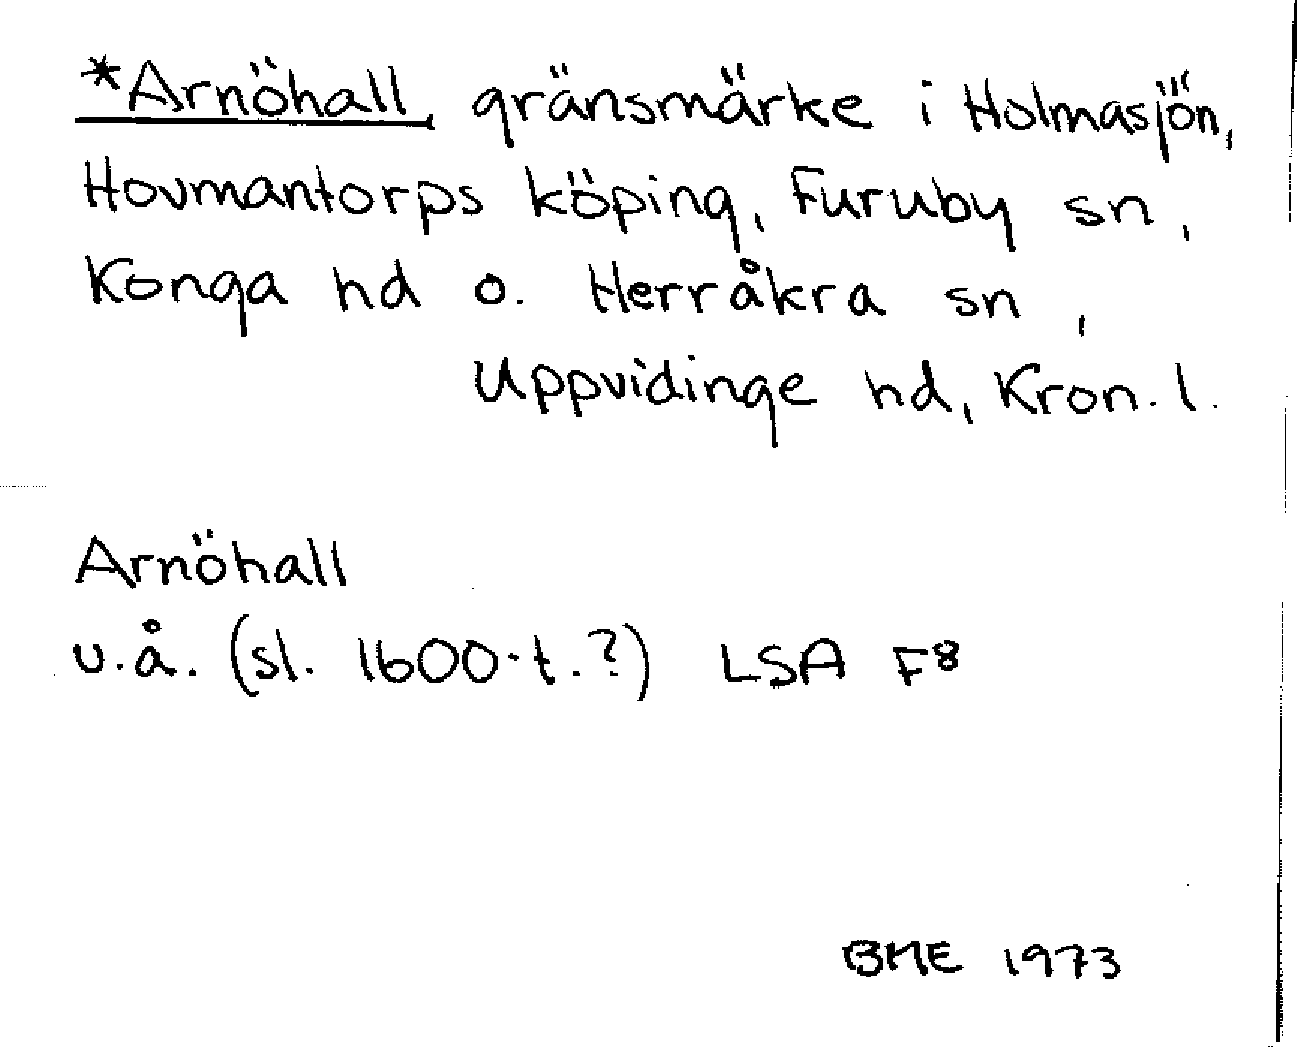 *Arnöhall gränsmärke i Holmasjön,
Hovmantorps köping, Furuby sn,
Konga hd o. Herråkra sn,
Uppvidinge hd, Kron. l.
Arnöhall
u.å. (sl. 1600-t.?) LSA F8
BME 1973